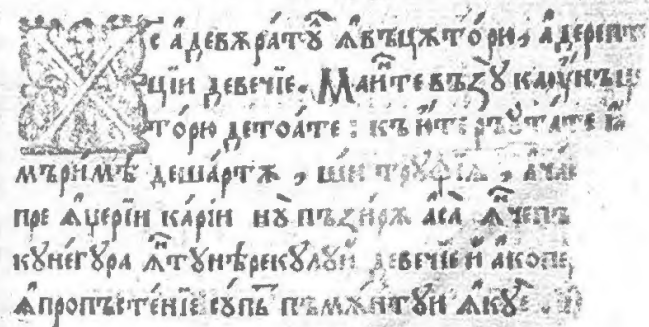 Хс а́девѫра́тꙋ̑ ꙟ҆въцѫто́рю, а҆дерепт
ції̈н девечїе. Маи́те въꙁꙋ̀ ка ꙋ҆нъ
то́рю детоа́те : къ и҆́те ръꙋта́те
мъри́мѣ деша́ртѫ , ши трꙋфі́ѧ , а҆чѧ
пре ꙟ҆церїи ка́рїи нꙋ̀ пъꙁи́рѫ аса̀ ꙟ҆чепъ
кꙋне́гꙋра ꙟ҆тꙋнѣ́рекꙋлꙋй девечїе й а҆копе
ꙟ҆пропъсте́нїе сꙋпь пъмѫ́нтꙋй